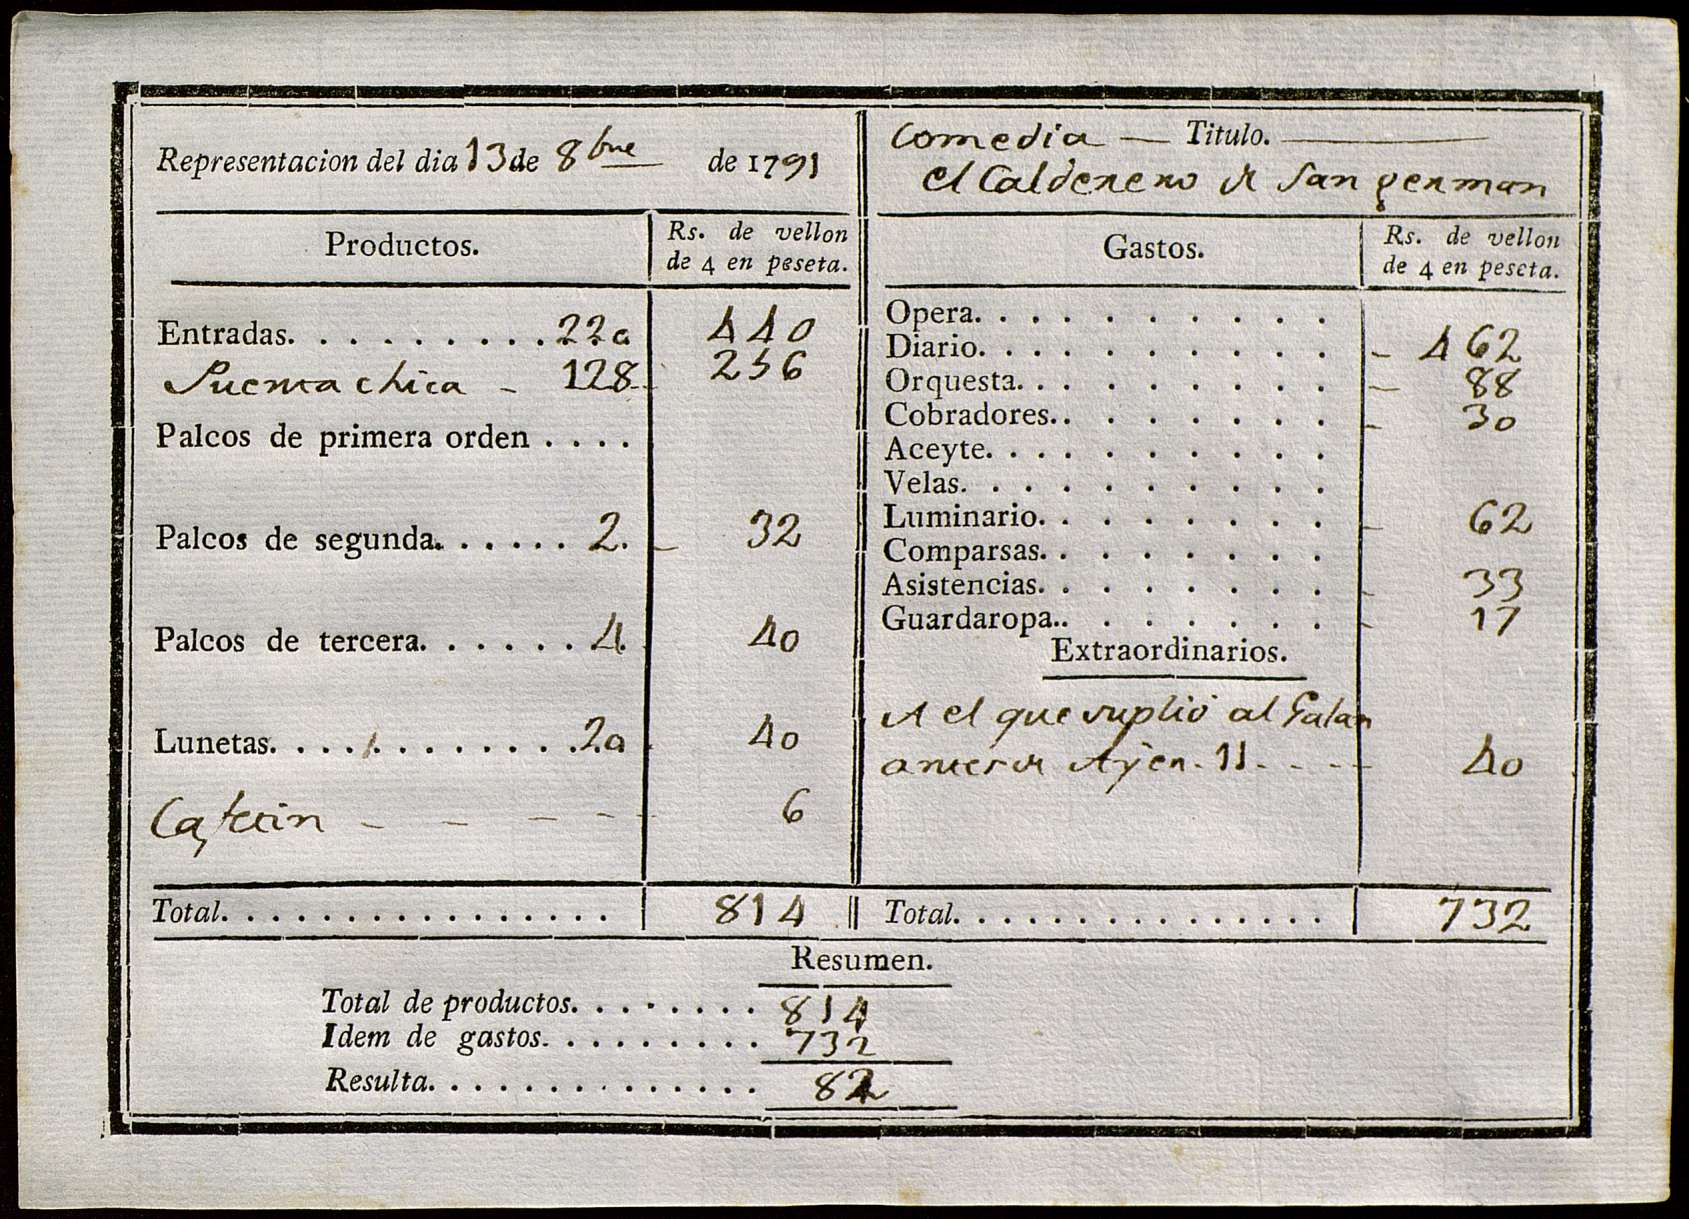 Representacion del dia 13 de 8bre de 1791
Comedia — Titulo.
el Calderero de San german
Productos.
Rs. de vellon
de 4 en peseta.
Gastos.
Rs. de vellon
de 4 en peseta.
Entradas. . . . . . . . . 220 440
Puerta chica - 128 256
Palcos de primera orden . . . .
Palcos de segunda. . . . . . 2. 32
Palcos de tercera. . . . . . 4. 40
Lunetas. . . . . . . . . . 20 40
6
Total. . . . . . . . . . . . . . . . 814
Opera. . . . . . . . . .
Diario. . . . . . . . . . 462
Orquesta. . . . . . . . . 88
Cobradores. . . . . . . . 30
Aceyte. . . . . . . . . .
Velas. . . . . . . . . .
Luminario. . . . . . . . 62
Comparsas. . . . . . . .
Asistencias. . . . . . . . 33
Guardaropa. . . . . . . . 17
Extraordinarios.
A el que suplió al Galan
antes de Ayer. 11 - - - - 40
Total. . . . . . . . . . . . . . . . 732
Resumen.
Total de productos. . . . . . . . 814
Idem de gastos. . . . . . . . . 732
Resulta. . . . . . . . . . . . . . 82